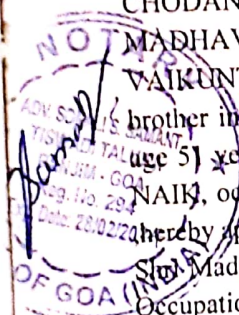 CHODAN
MADHAV
VAIKUNT
brother in
age 51 ye
NAIK, oc
hereby ap
Shri Mad
Occupatio
NOTAR
ADV. S
S. SAMANT
TISWADI TALU
PANJIM - GOA
Reg. No. 294
Date: 28/02/20
OF GOA (INDIA)